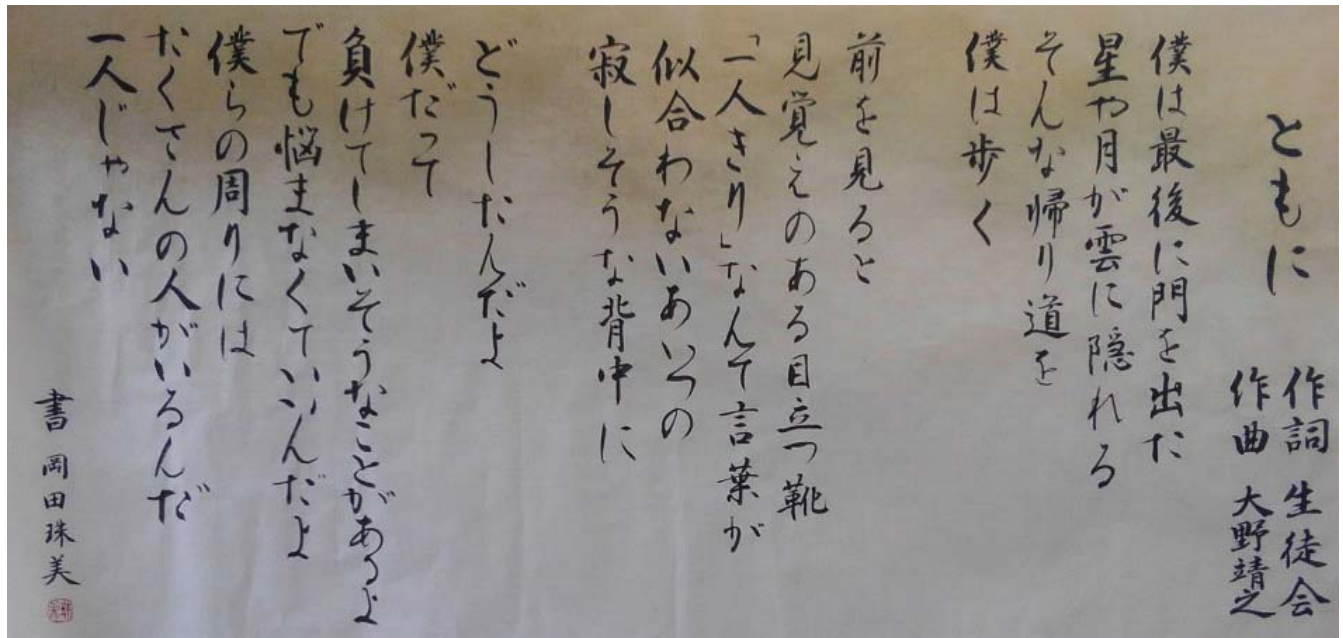 ともに
作詞 生徒会
作曲 大野靖之
僕は最後に門を出た
星や月が雲に隠れる
そんな帰り道を
僕は歩く
前を見ると
見覚えのある目立つ靴
「一人きり」なんて言葉が
似合わないあいつの
寂しそうな背中に
どうしたんだよ
僕だって
負けてしまいそうなことがあるよ
でも悩まなくていいんだよ
僕らの周りには
たくさんの人がいるんだ
一人じゃない
書 岡田珠美